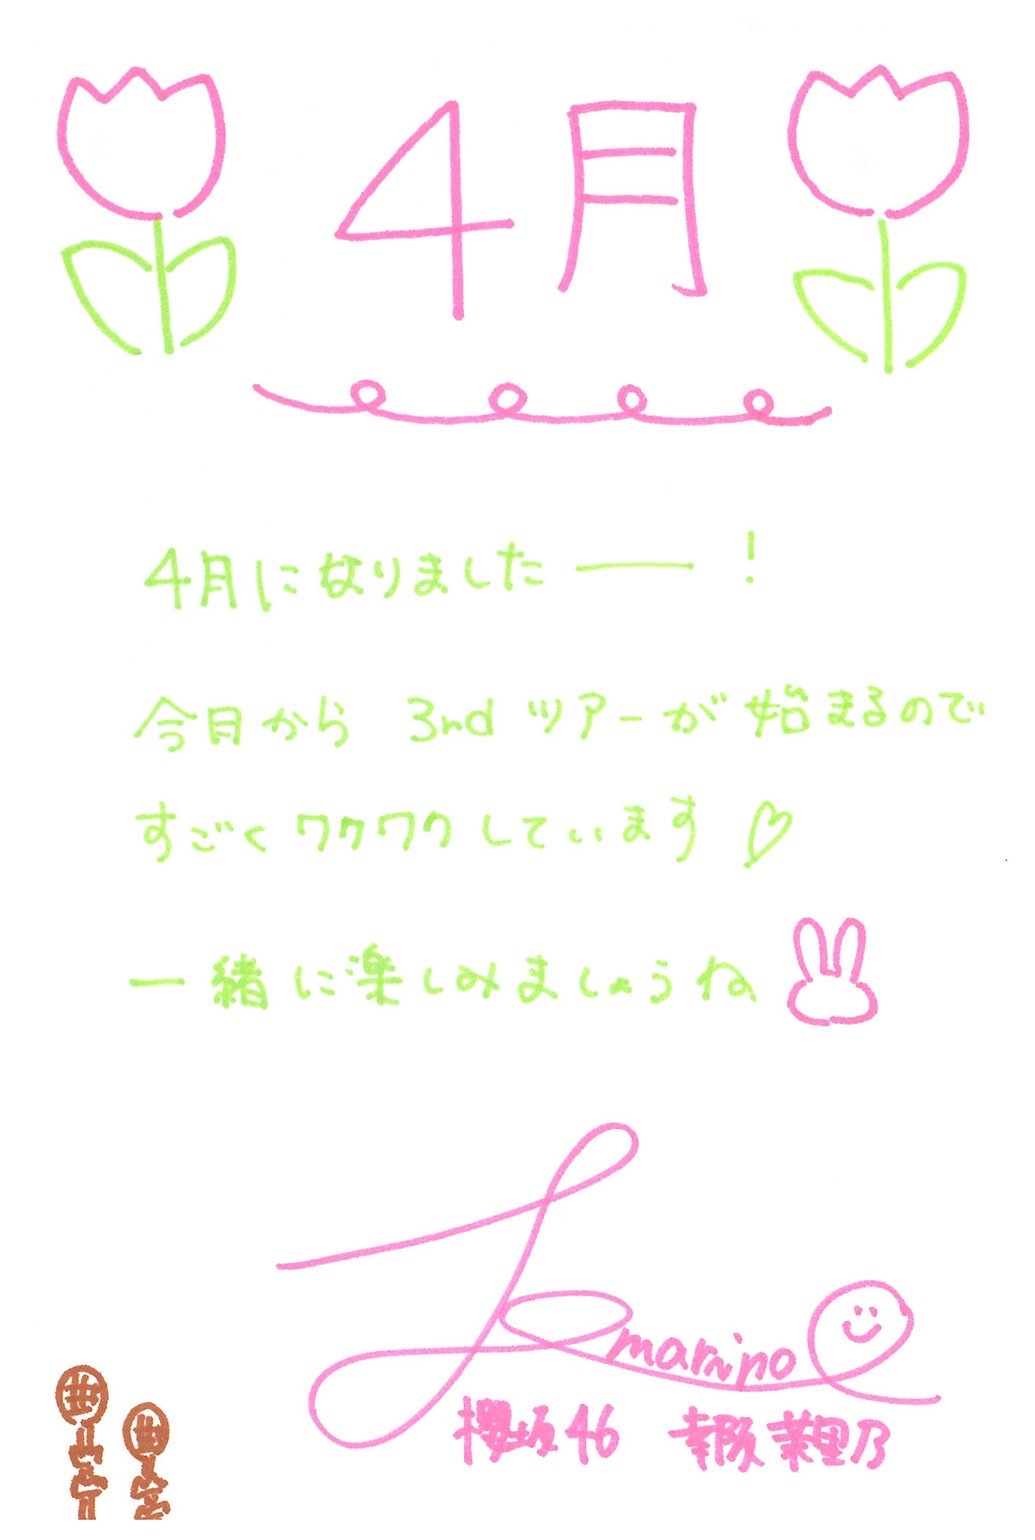 4月
4月になりましたー!
今月から 3rdツアーが始まるので
すごくワクワクしています♡
一緒に楽しみましょうね
marino
櫻坂46 幸阪茉里乃